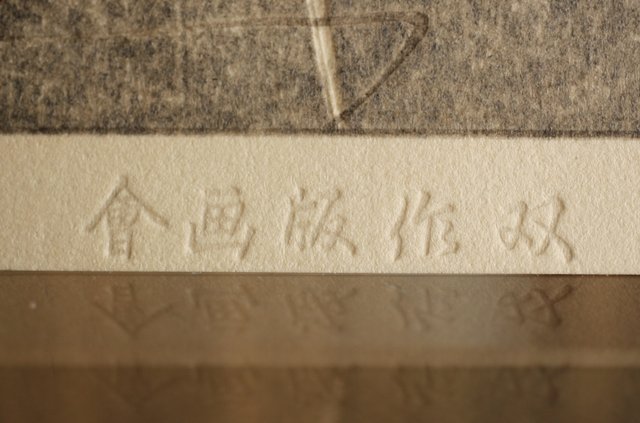 双作版画會